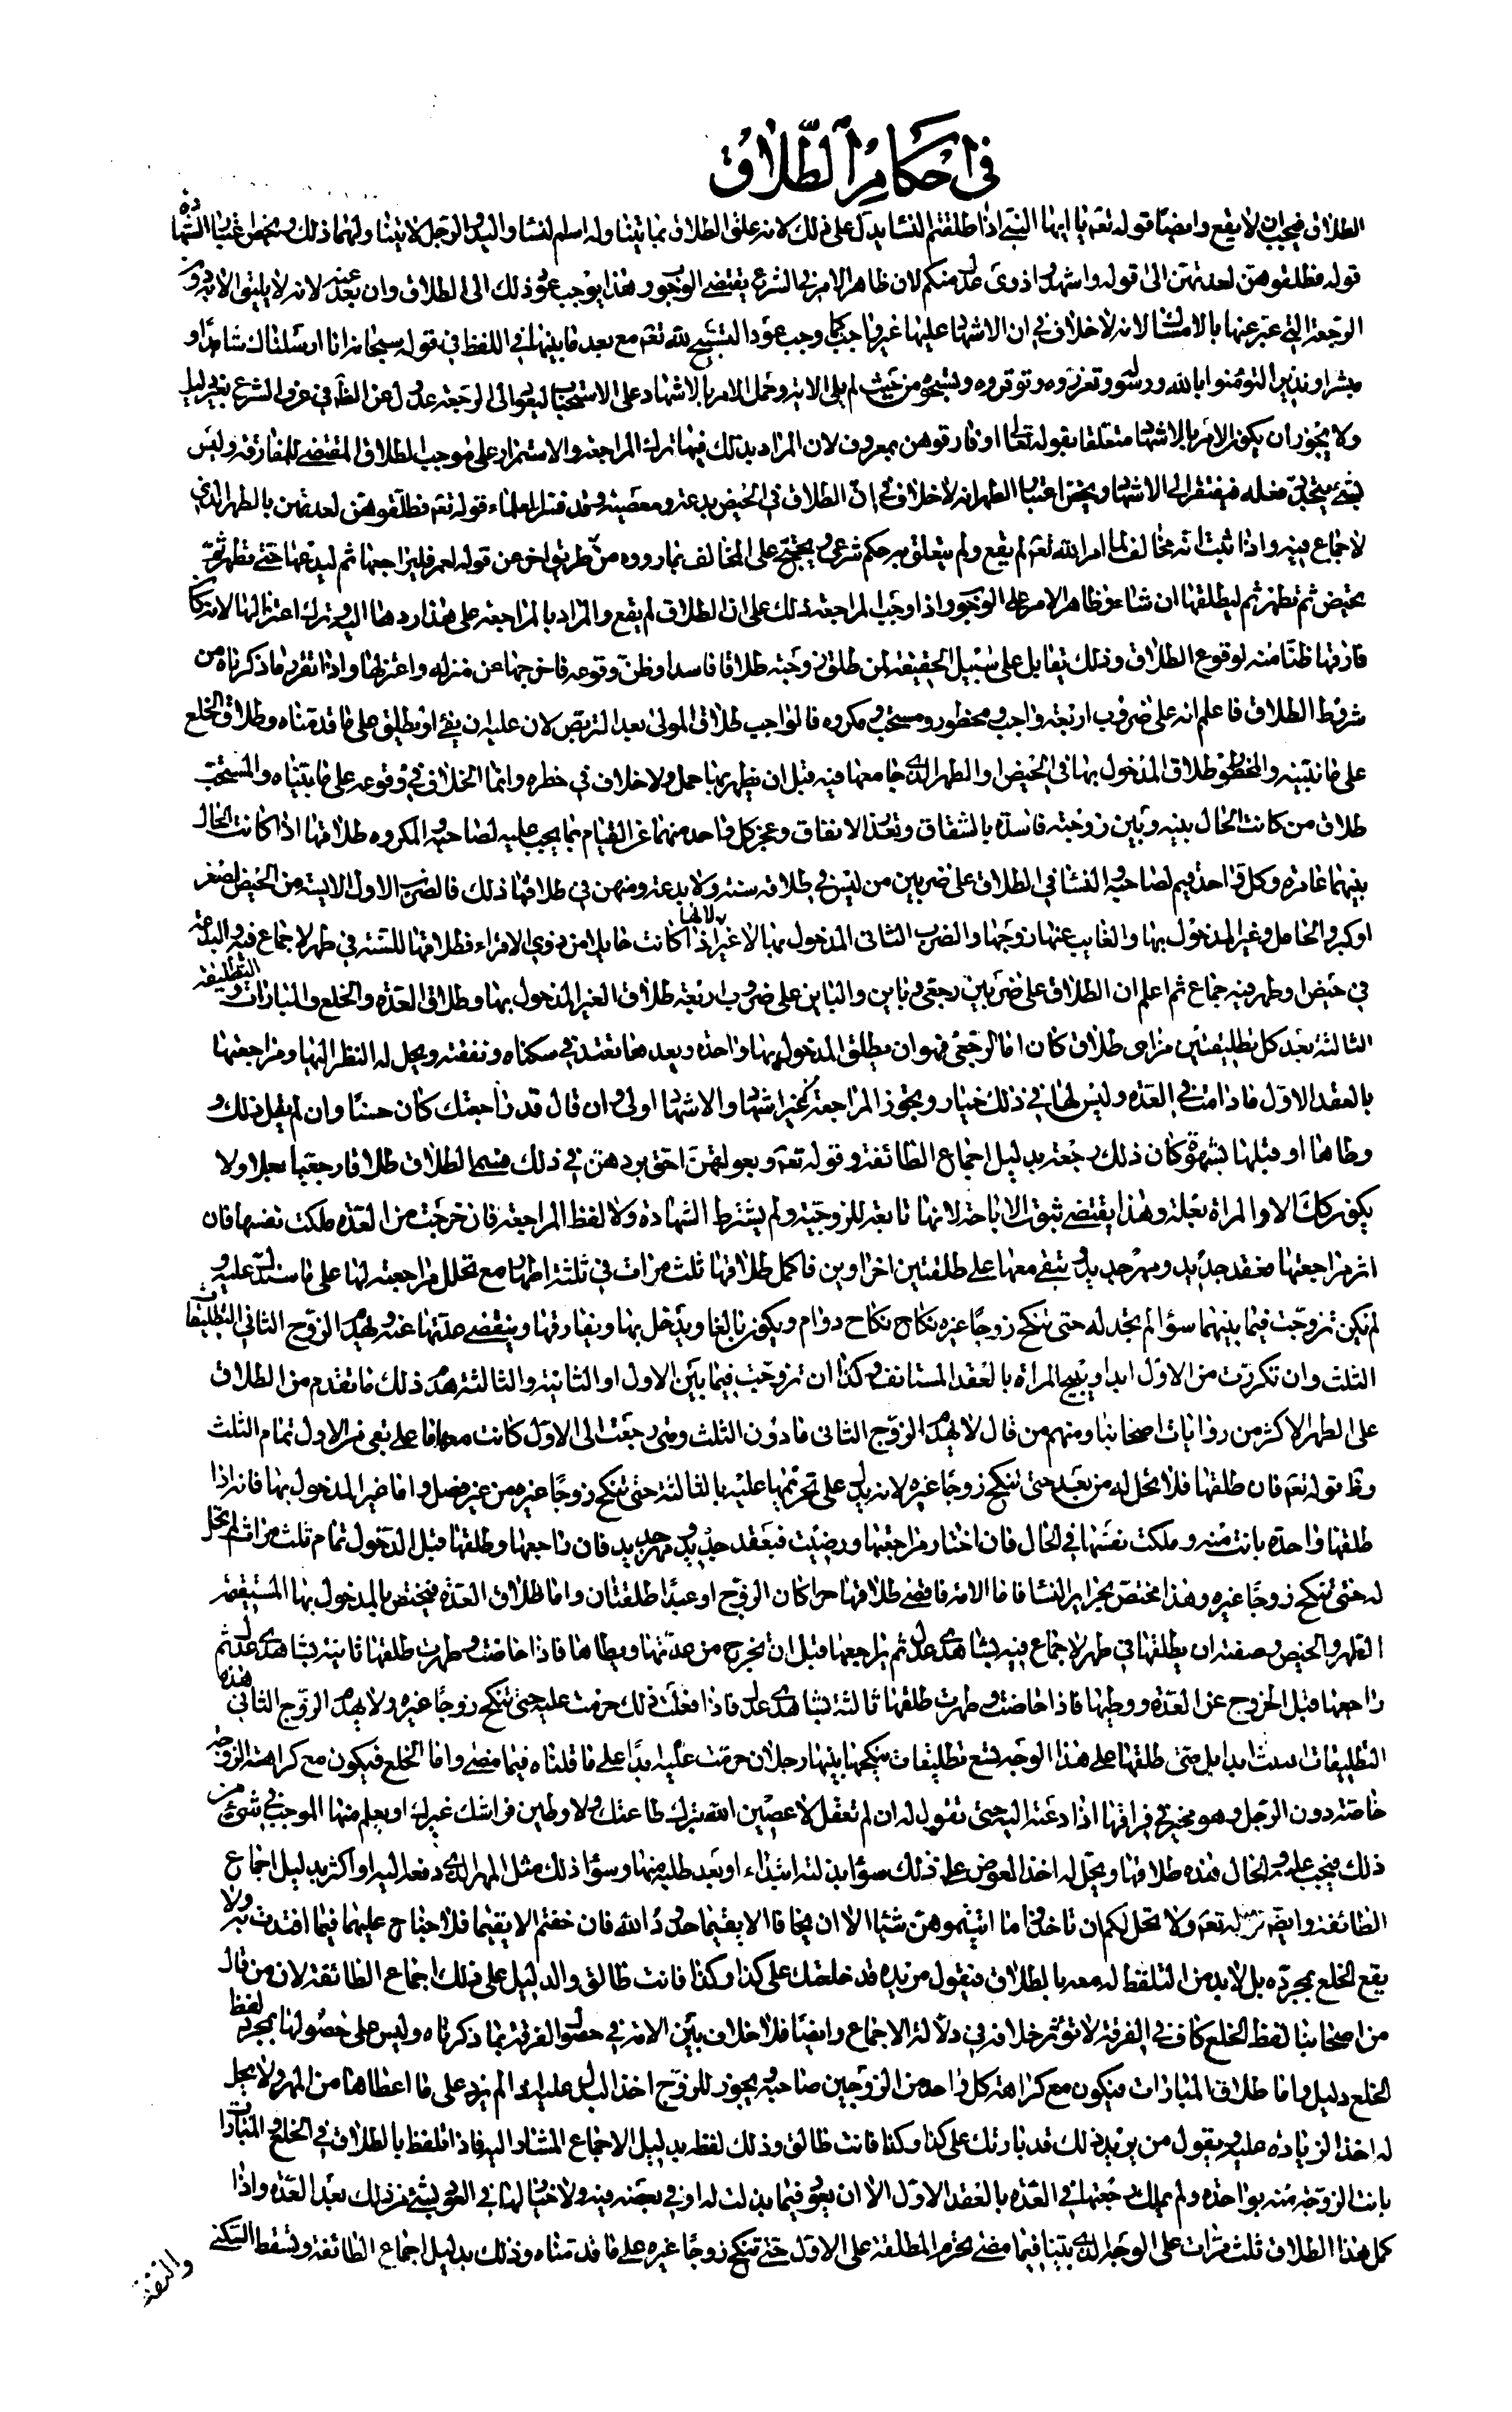 في احكام الطلاق
الطلاق فيجب ان لا يقع وايضا قوله تعم يا ايها النبي اذا طلقتم النساء يدل على ذلك لانه علق الطلاق بما يتناوله اسم النساء واليد والرجل لا يتناولهما ذلك ويخص غيابا الشهادة
قوله فطلقوهن لعدتهن الى قوله واشهدوا ذوي عدل منكم لان ظاهر الامر في الشرع يقتضي الوجوب وهذا يوجب عود ذلك الى الطلاق وان بعد عنه لانه لا يليق الا به دون
الرجعة التي عبر عنها بالامساك لانه لا خلاف في ان الاشهاد عليها غير واجب كما وجب عود التسبيح لله تعم مع بعد ما بينهما في اللفظ في قوله سبحانه انا ارسلناك شاهدا و
مبشرا ونذيرا لتؤمنوا بالله ورسوله وتعزروه وتوقروه وتسبحوه من حيث لم يلق الا به وحمل الامر بالاشهاد على الاستحباب ليعود الى الرجعة عدول عن الظاهر في عرف الشرع بغير دليل
ولا يجوز ان يكون الامر بالاشهاد متعلقا بقوله تعالى او فارقوهن بمعروف لان المراد بذلك فيها ترك المراجعة والاستمرار على موجب الطلاق المقتضي للمفارقة وليس
بشيء يتجدد فعله فيفتقر الى الاشهاد ويخص اعتبار الطهر انه لا خلاف في ان الطلاق في الحيض بدعة ومعصية وقد فسر العلماء قوله تعم فطلقوهن لعدتهن بالطهر الذي
لا جماع فيه واذا ثبت انه مخالف لما امر الله تعم لم يقع ولم يتعلق به حكم شرعي ويحتج على المخالف بما رووه من طريق اخر عن قوله لعمر فليراجعها ثم ليدعها حتى تطهر ثم
تحيض ثم تطهر ثم ليطلقها ان شاء وظاهر الامر على الوجوب واذا وجب المراجعة ذلك على ان الطلاق لم يقع والمراد بالمراجعة على هذا ردها اليه وترك اعتزالها لانه كان
فارقها ظنا منه لوقوع الطلاق وذلك يقابل على سبيل الحقيقة لمن طلق زوجته طلاقا فاسدا وظن وقوعه فاخرجها عن منزله واعتزلها واذا تقرر ما ذكرناه من
شروط الطلاق فاعلم انه على ضروب اربعة واجب ومحظور ومستحب ومكروه فالواجب طلاق المولى بعد التربص لان عليه ان يفيء او يطلق على ما قدمناه وطلاق الخلع
على ما نبينه والمحظور طلاق المدخول بها في الحيض او الطهر الذي جامعها فيه قبل ان يظهر بها حمل ولا خلاف في خطره وانما الخلاف في وقوعه على ما بيناه والمستحب
طلاق من كانت الحال بينه وبين زوجته فاسدة بالشقاق وتعذر الاتفاق وعجز كل واحد منهما عن القيام بما يجب عليه لصاحبه والمكروه طلاقها اذا كانت الحال
بينهما عامرة وكل واحد قيم لصاحبه والنساء في الطلاق على ضربين من ليس في طلاقه سنة ولا بدعة ومنهن في طلاقها ذلك فالضرب الاول الايسة من الحيض لصغر
او كبر والحامل وغير المدخول بها والغايب عنها زوجها والضرب الثاني المدخول بها لا غير اذا كانت حايلا من ذوي الاقراء فطلاقها للسنة في طهر لا جماع فيه والبدعة
في حيض او طهر فيه جماع ثم اعلم ان الطلاق على ضربين رجعي وباين والباين على ضروب اربعة طلاق الغير المدخول بها وطلاق العدة والخلع والمبارات والتطليقة
الثالثة بعد كل تطليقتين من اي طلاق كان اما الرجعي فهو ان يطلق المدخول بها واحدة ويعدها تعتد في سكناه ونفقته ويحل له النظر اليها ومراجعتها
بالعقد الاول ما دامت في العدة وليس لها في ذلك خيار ويجوز المراجعة بغير اشهاد والاشهاد اولى وان قال قد راجعتك كان حسنا وان لم يقل ذلك و
وطاها او قبلها بشهوة كان ذلك رجعة بدليل اجماع الطائفة وقوله تعم وبعولتهن احق بردهن في ذلك فسمى الطلاق طلاقا رجعيا بعلا ولا
يكون كك الا والمراة بعلة وهذا يقتضي ثبوت الاباحة لانها تابعة للزوجية ولم يشترط الشهادة ولا لفظ المراجعة فان خرجت من العدة ملكت نفسها فان
اثر مراجعتها فعقد جديد ومهر جديد وتبقى معها على طلقتين اخراوين فاكمل طلاقها ثلث مرات في ثلثة اطهار مع تخلل مراجعته لها على ما سندل عليه و
لم تكن تزوجت فيما بينهما سواه لم تحل له حتى تنكح زوجا غيره نكاح دوام ويكون بالغا ويدخل بها ويفارقها وينقضي عدتها عنه ويهدم الزوج الثاني التطليقات
الثلث وان تكررت من الاول ابدا ويبيح المراة بالعقد المستانف وكذا ان تزوجت فيما بين الاول او الثانية والثالثة هدم ذلك ما تقدم من الطلاق
على الظهر الاكثر من روايات اصحابنا ومنهم من قال لا يهدم الزوج الثاني ما دون الثلث ومتى رجعت الى الاول كانت معه على ما بقي من الاول تمام الثلث
وظ قوله تعم فان طلقها فلا تحل له من بعد حتى تنكح زوجا غيره لانه يدل على تحريمها عليه بالثالثة حتى تنكح زوجا غيره من غير فصل واما غير المدخول بها فانه اذا
طلقها واحدة بانت منه وملكت نفسها في الحال فان اختار مراجعتها ورضيت فبعقد جديد ومهر جديد فان راجعها وطلقها قبل الدخول تمام ثلث مرات لم تحل
له حتى تنكح زوجا غيره وهذا مختص بحراير النساء فاما الامة فاقصى طلاقها حرا كان الزوج او عبدا طلقتان واما طلاق العدة فيختص بالمدخول بها المستقيمة
الطهر والحيض وصفته ان يطلقها في طهر لا جماع فيه بشاهدي عدل ثم يراجعها قبل ان تخرج من عدتها ويطاها فاذا حاضت وطهرت طلقها ثانية بشاهدي عدل ثم
راجعها قبل الخروج عن العدة ووطيها فاذا حاضت وطهرت طلقها ثالثة بشاهدي عدل فاذا فعلت ذلك حرمت عليه حتى تنكح زوجا غيره ولا يهدم الزوج الثاني هذه
التطليقات الثلث ابدا بل متى طلقها على هذا الوجه تسع تطليقات ينكحها بينها رجلان حرمت عليه ابدا على ما قلناه فيما مضى واما الخلع فيكون مع كراهة الزوجة
خاصة دون الرجل وهو مخير في فراقها اذا دعته اليه حتى تقول له ان لم تفعل لاعصين الله بترك طاعتك ولاوطين فراشك غيرك او يعلم منها الموجب في شيء من
ذلك فيجب عليه والحال هذه طلاقها ويحل له اخذ العوض على ذلك سواء بذلته ابتداء او بعد طلبه منها وسواء ذلك مثل المهر الذي دفعه اليه او اكثر بدليل اجماع
الطائفة وايضا قوله تعم ولا يحل لكم ان تاخذوا مما اتيتموهن شيئا الا ان يخافا الا يقيما حدود الله فان خفتم الا يقيما فلا جناح عليهما فيما افتدت به ولا
يقع الخلع بمجرده بل لا بد من التلفظ له معه بالطلاق فيقول مريده قد خلعتك على كذا وكذا فانت طالق والدليل على ذلك اجماع الطائفة لان من قال
من اصحابنا لفظ الخلع كاف في الفرقة لا تؤثر خلافه في دلالة الاجماع وايضا فلا خلاف بين الامة في حصول الفرقة بما ذكرناه وليس على حصولها بمجرد لفظ
الخلع دليل واما طلاق المبارات فيكون مع كراهة كل واحد من الزوجين صاحبه ويجوز للزوج اخذ البذل عليه اذا لم يزد على ما اعطاها من المهر ولا يحل
له اخذ الزيادة عليه ويقول من يريد ذلك قد بارتك على كذا وكذا فانت طالق وذلك لفظه بدليل الاجماع المشار اليه فاذا تلفظ بالطلاق في الخلع والمبارات
بانت الزوجة منه بواحدة ولم يملك رجعتها في العدة بالعقد الاول الا ان يعود فيما بذلت له او في بعضه فيه ولا خيار لها في العود بشيء من ذلك بعد العدة واذا
كمل هذا الطلاق ثلث مرات على الوجه الذي بينا فيما مضى تحرم المطلقة على الاول حتى تنكح زوجا غيره على ما قدمناه وذلك بدليل اجماع الطائفة وتسقط السكنى
والنفقة